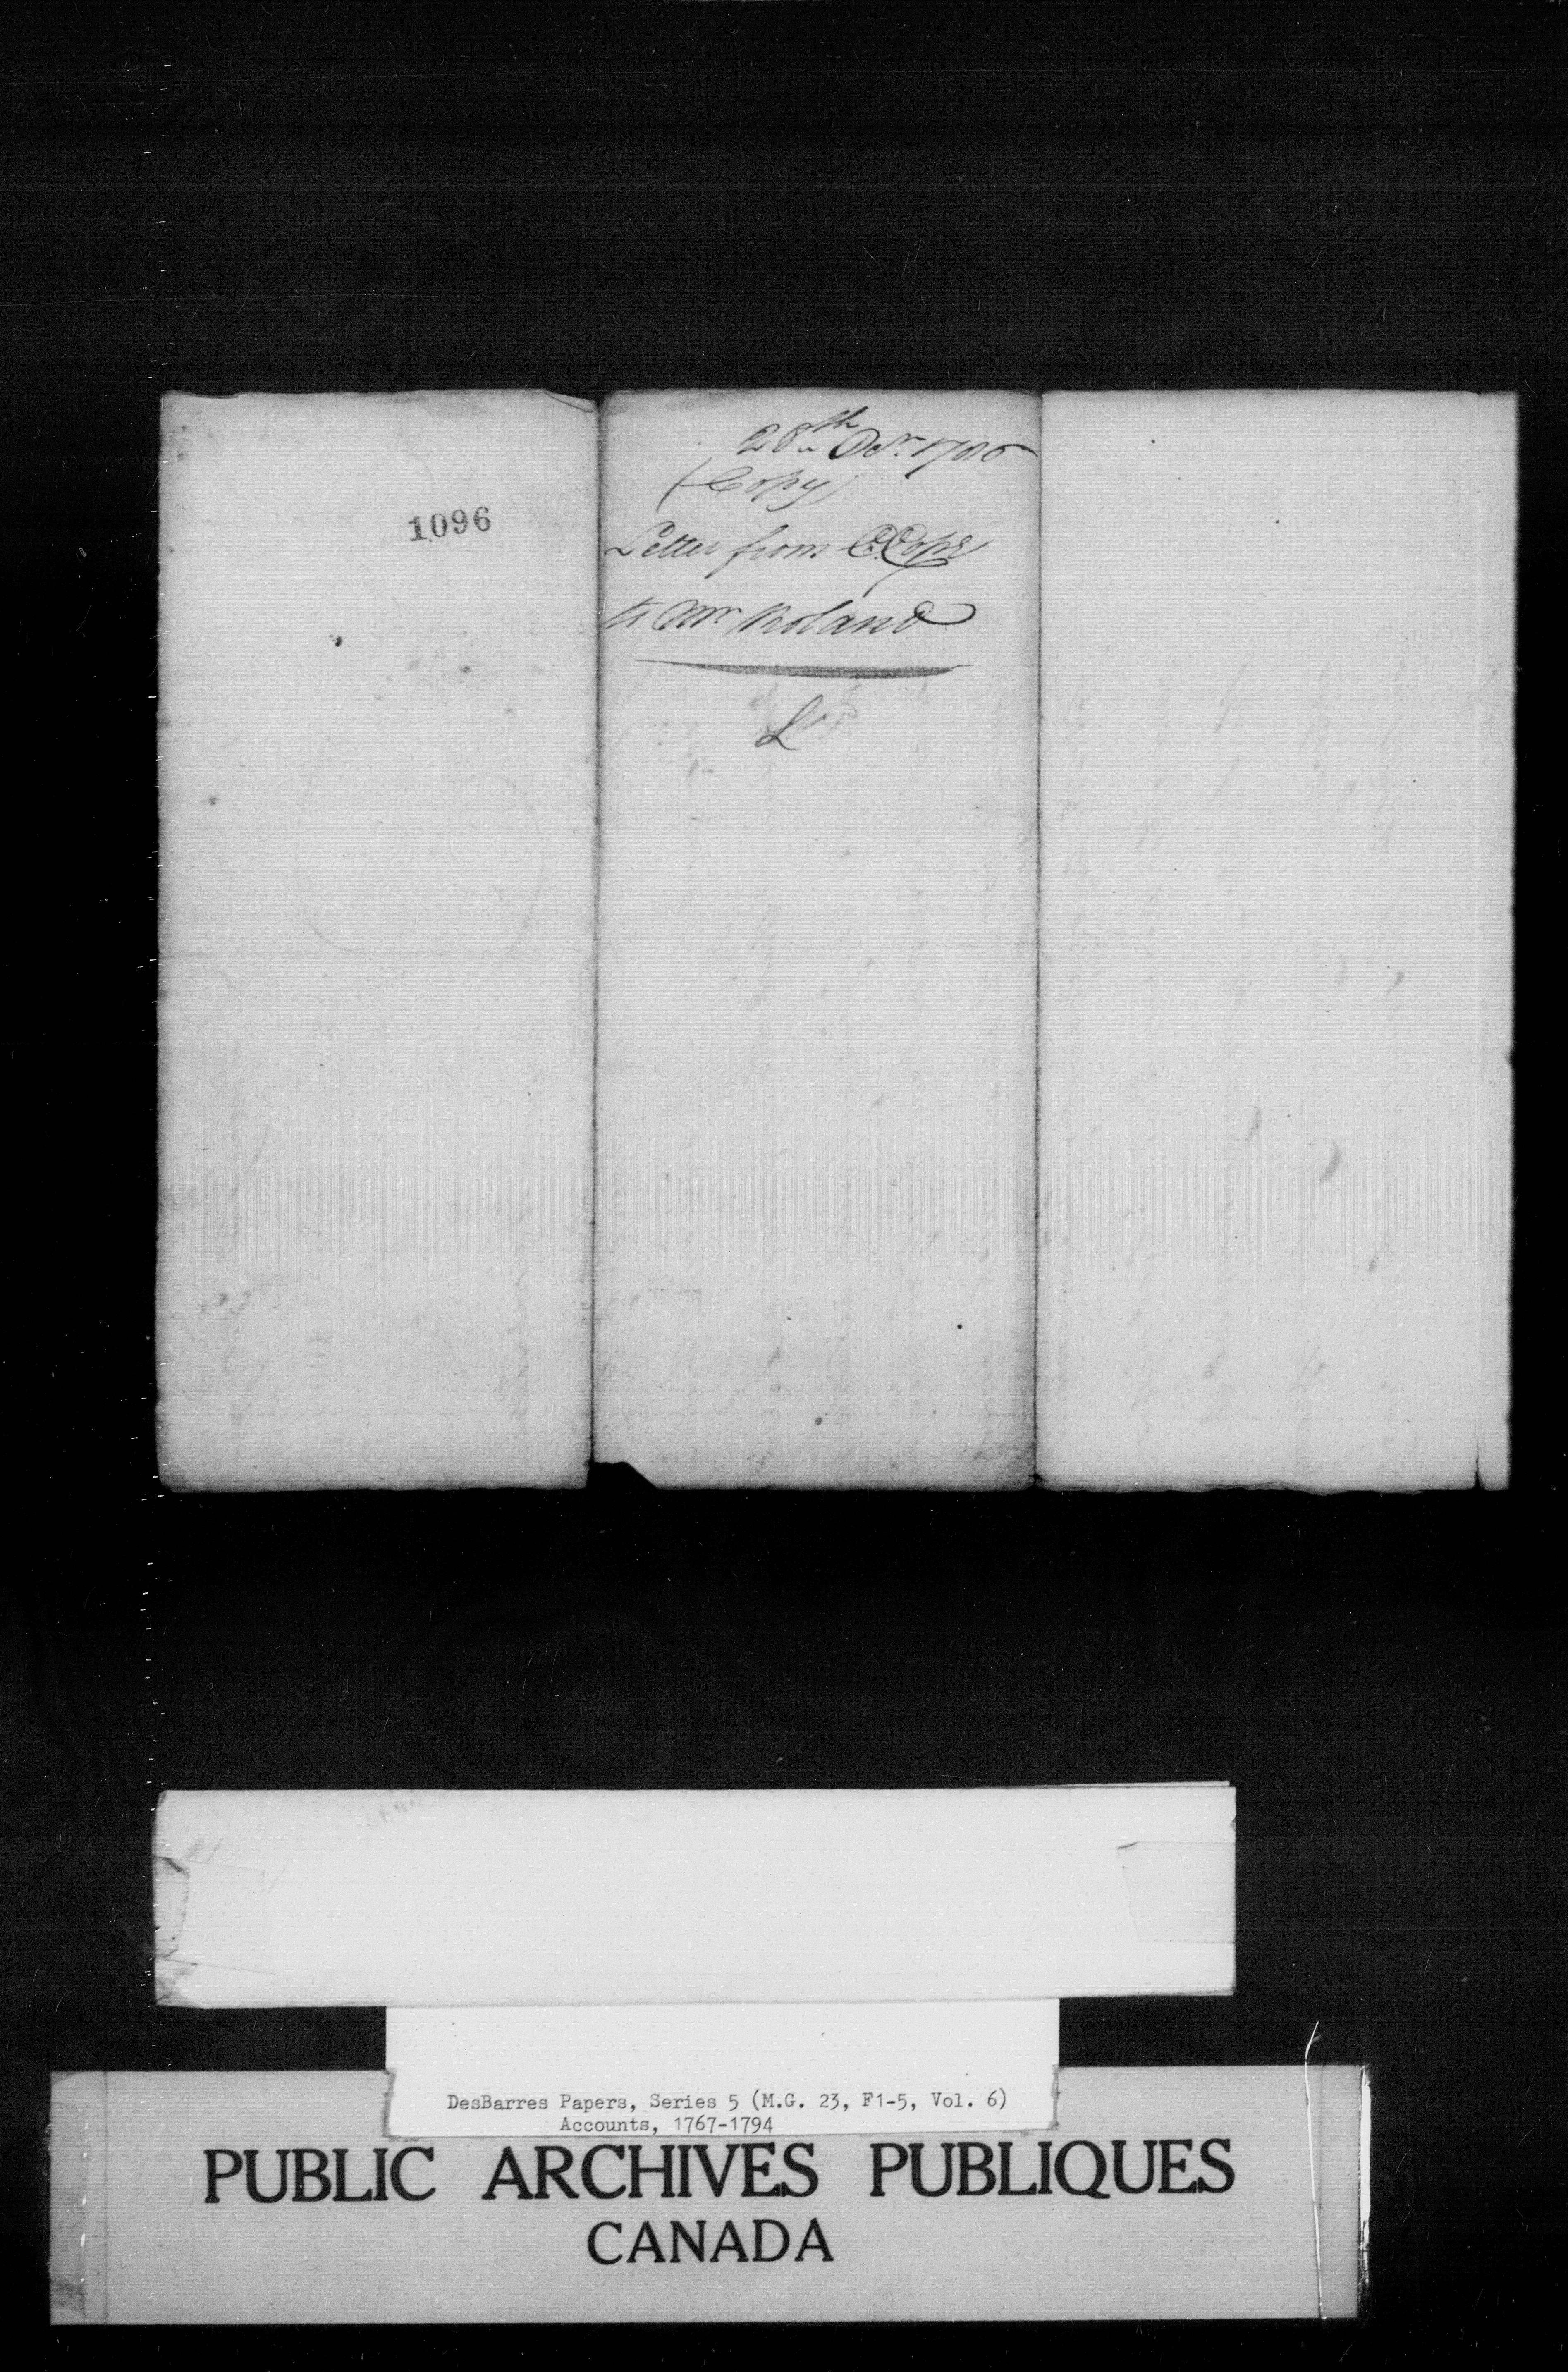 1096
28th Decr. 1786
(Copy)
Letter from C. Cope
to Mr Roland
DesBarres Papers, Series 5 (M.G. 23, F1-5, Vol. 6)
Accounts, 1767-1794
PUBLIC ARCHIVES PUBLIQUES
CANADA